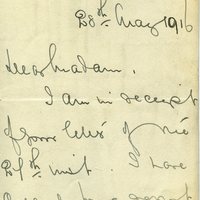 28th May 1916
Dear Madam.
I am in receipt
of your letter of the
27th inst. I have